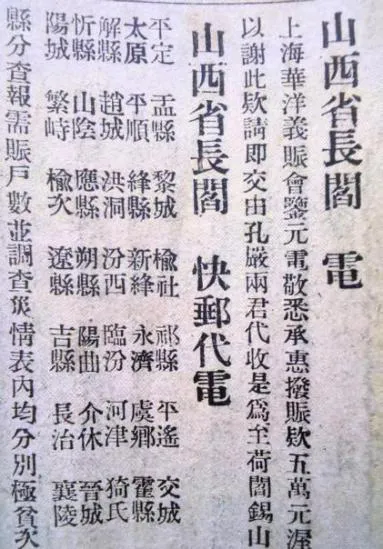 山西省長閻 電
上海華洋義賑會鑒元電敬悉承惠撥賑欵五萬元渥
以謝此欵請即交由孔嚴兩君代收是爲至荷閻錫山
山西省長閻 快郵代電
平定 盂縣 黎城 榆社 祁縣 平遙 交城
太原 平順 絳縣 新絳 永濟 虞鄉 霍縣
解縣 趙城 洪洞 汾西 臨汾 河津 猗氏
忻縣 山陰 應縣 朔縣 陽曲 介休 晉城
陽城 繁峙 榆次 遼縣 吉縣 長治 襄陵
縣分查報需賑戶數並調查災情表內均分別極貧次